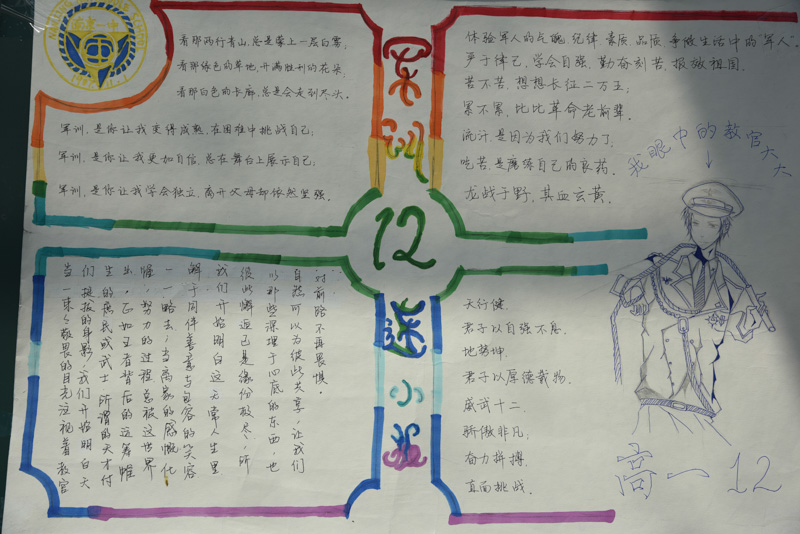 南京一中
看那两行青山,总是蒙上一层白雾;
看那绿色的草地,开满胜利的花朵,
看那白色的长廊,总是会走到尽头。
军训,是你让我变得成熟,在困难中挑战自己;
军训,是你让我更加自信,总在舞台上展示自己;
军训,是你让我学会独立,离开父母却依然坚强。
军训
12
小
体验军人的气魄,纪律,素质,品质,争做生活中的"军人"。
严于律己,学会自强,勤奋刻苦,报效祖国。
苦不苦,想想长征二万五;
累不累,比比革命老前辈。
流汗,是因为我们努力了;
吃苦,是磨练自己的良药。
龙战于野,其血玄黄。
我眼中的教官大大
对前路不再畏惧。
自然可以为彼此共享,让我们
以那些深埋于心底的东西,也
彼此瞬道已是缘份散尽,所
我们开始明白这天常人生里
解于同伴善意与包容的笑容
一一略去;当离家的感慨化
怪,努力的过程总被这世界
出,正如王者背后的运筹帷
生的庶民或武士,所谓的天才付
们挺拔的身影,我们开始明白天
当一束々敬畏的目光注视着教官
天行健,
君子以自强不息,
地势坤,
君子以厚德载物,
威武十二,
骄傲非凡,
奋力拼搏,
直面挑战。
高一12